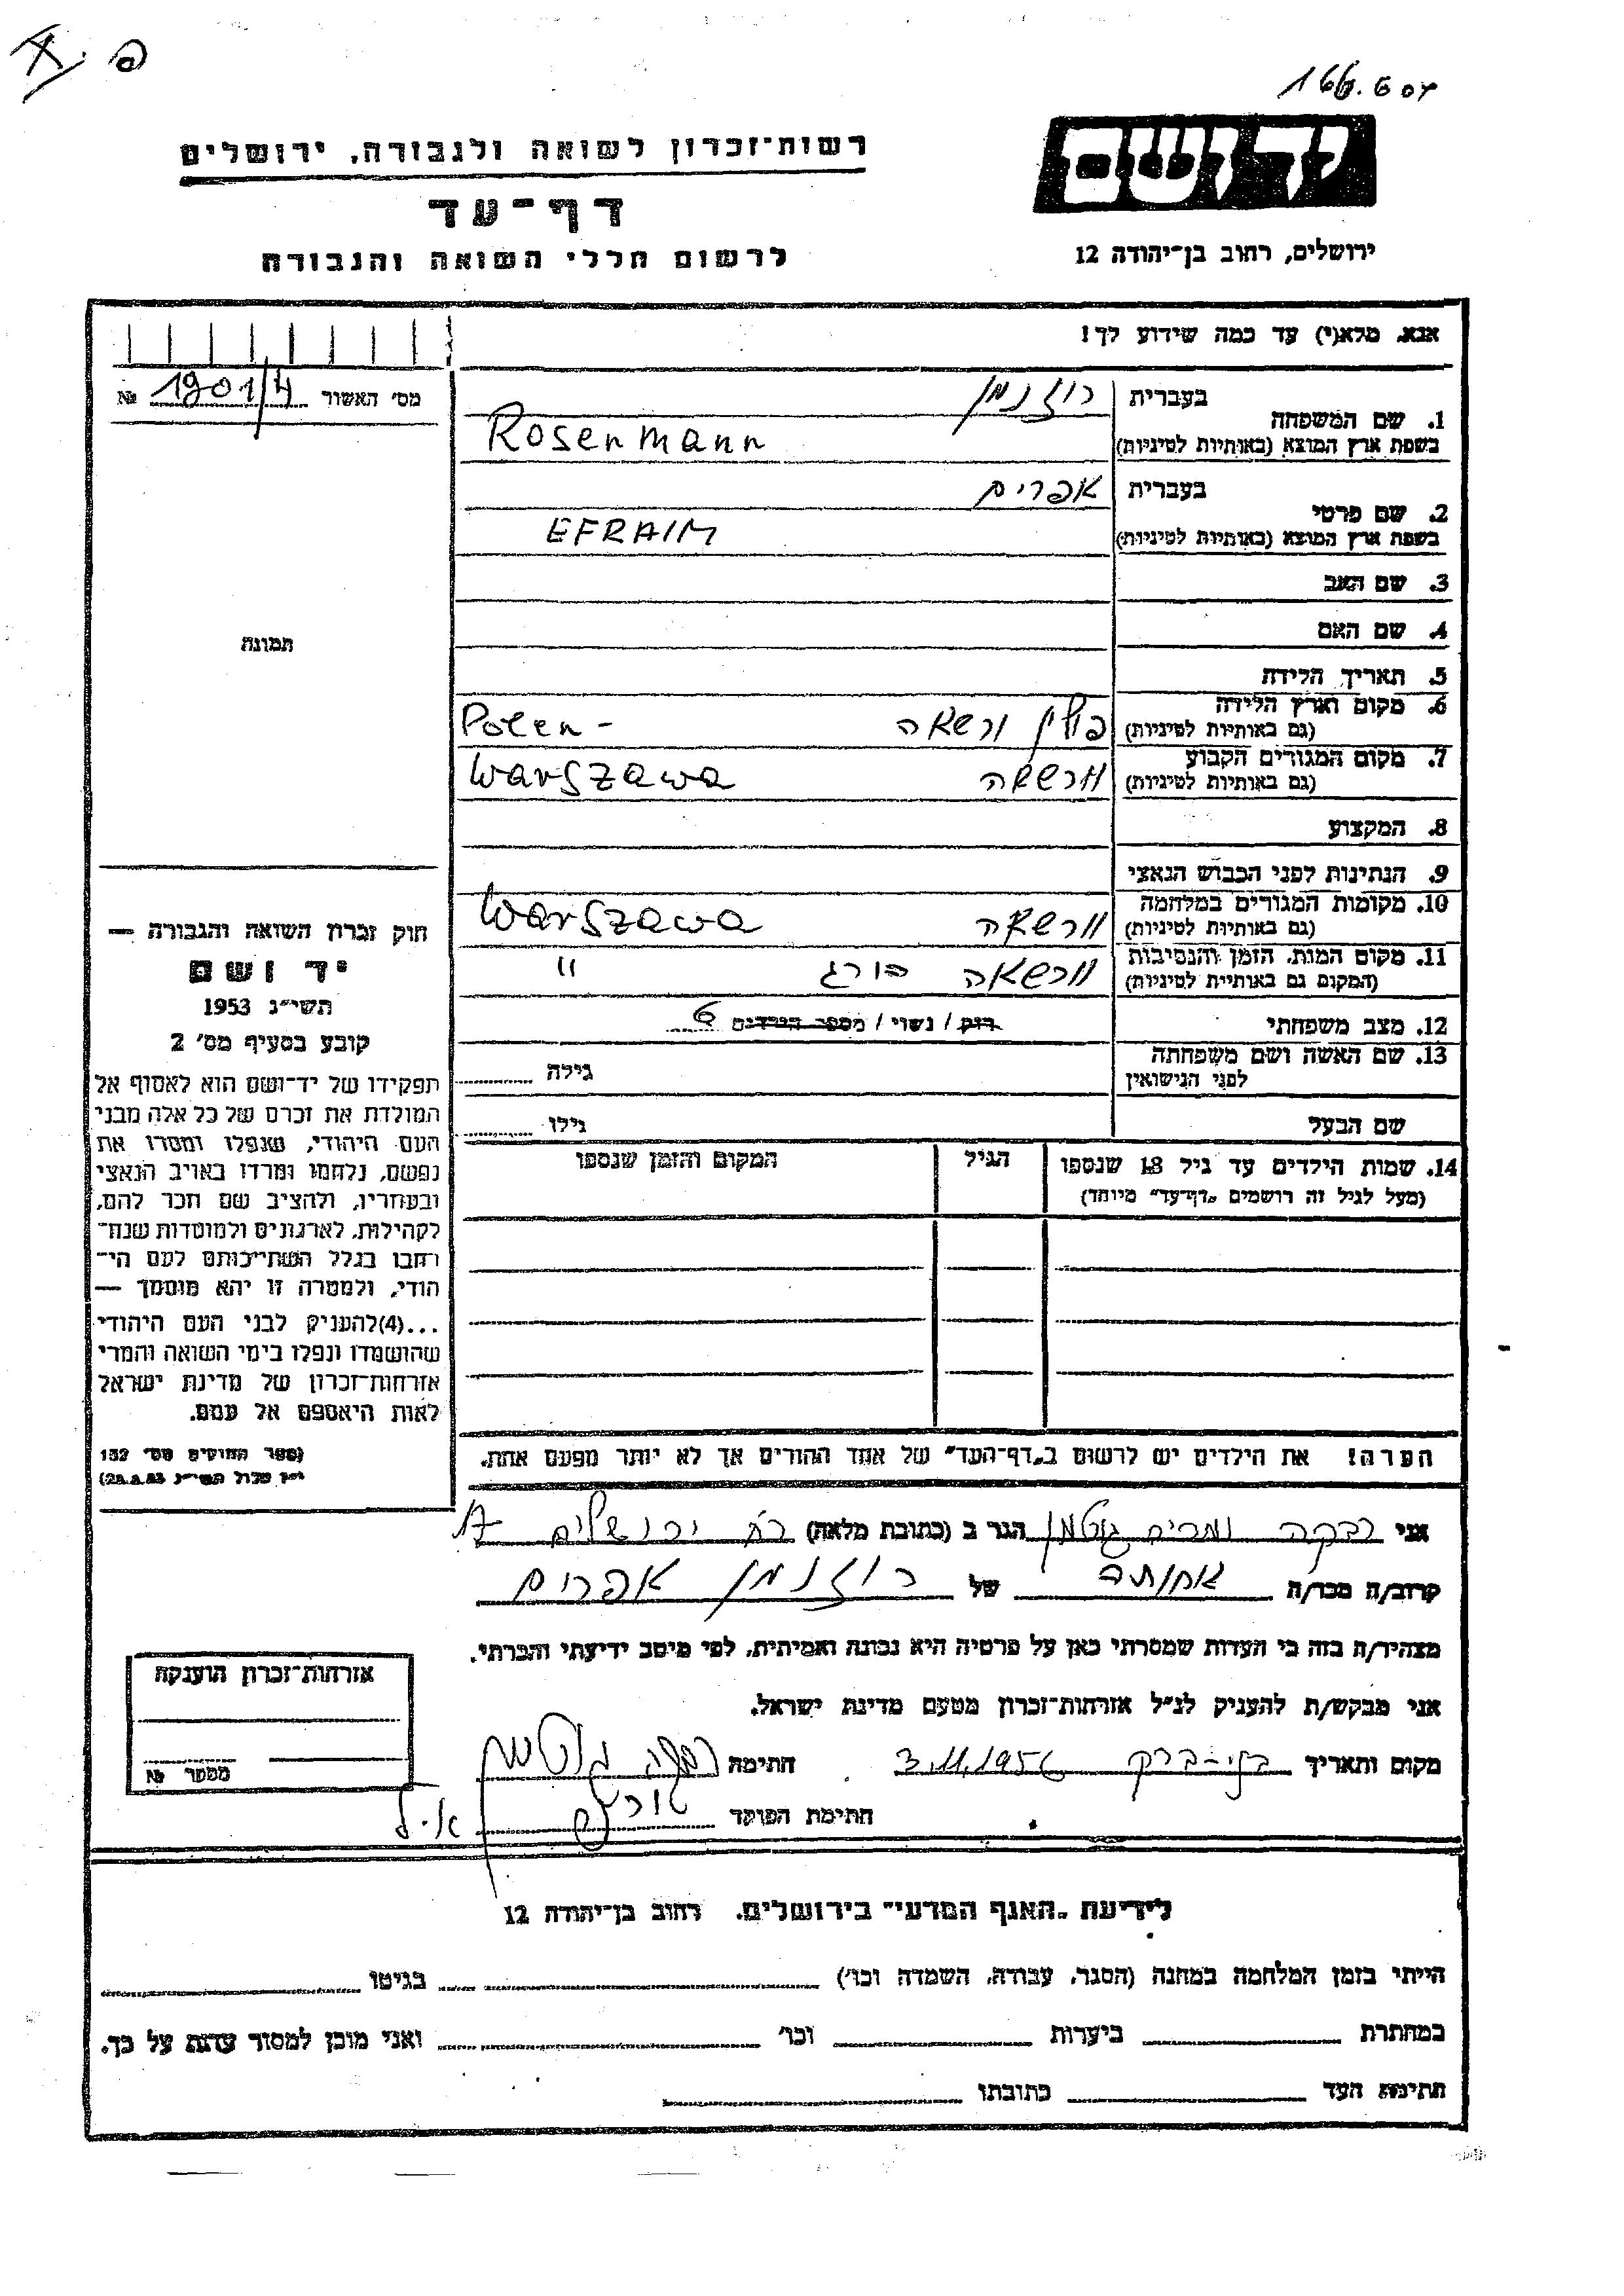 166.607
יד ושם
רשות־זכרון לשואה ולגבורה, ירושלים
דף־עד
לרשום חללי השואה והגבורה
ירושלים, רחוב בן־יהודה 12
אנא, מלא(י) עד כמה שידוע לך!
מס' האשור 1901/4 №
1. שם המשפחה
בעברית רוזנמן
בשפת ארץ המוצא (באותיות לטיניות) Rosenmann
2. שם פרטי
בעברית אפרים
בשפת ארץ המוצא (באותיות לטיניות) EFRAIM
3. שם האב
4. שם האם
תמונה
5. תאריך הלידה
6. מקום וארץ הלידה
(גם באותיות לטיניות) פולין ורשאה Polen -
7. מקום המגורים הקבוע
(גם באותיות לטיניות) וורשאה Warszawa
8. המקצוע
9. הנתינות לפני הכבוש הנאצי
10. מקומות המגורים במלחמה
(גם באותיות לטיניות) וורשאה Warszawa
11. מקום המות, הזמן והנסיבות
(המקום גם באותיות לטיניות) וורשאה הורג "
12. מצב משפחתי רוק / נשוי / מספר הילדים 6
13. שם האשה ושם משפחתה
לפני הנישואין גילה
שם הבעל גילו
14. שמות הילדים עד גיל 18 שנספו הגיל המקום והזמן שנספו
(מעל לגיל זה רושמים „דף־עד" מיוחד)
חוק זכרון השואה והגבורה —
יד ושם
תשי"ג 1953
קובע בסעיף מס' 2
תפקידו של יד־ושם הוא לאסוף אל
המולדת את זכרם של כל אלה מבני
העם היהודי, שנפלו ומסרו את
נפשם, נלחמו ומרדו באויב הנאצי
ובעוזריו, ולהציב שם וזכר להם,
לקהילות, לארגונים ולמוסדות שנח־
רבו בגלל השתייכותם לעם הי־
הודי, ולמטרה זו יהא מוסמך —
...(4) להעניק לבני העם היהודי
שהושמדו ונפלו בימי השואה והמרי
אזרחות־זכרון של מדינת ישראל
לאות היאספם אל עמם.
(ספר החוקים מס' 132
י"ז אלול תשי"ג 28.8.53)
הערה! את הילדים יש לרשום ב„דף־העד" של אחד ההורים אך לא יותר מפעם אחת.
אני רבקה ומרים גוטמן הגר ב (כתובת מלאה) רח ירושלים 17
קרוב/ה מכר/ה אחותה של רוזנמן אפרים
מצהיר/ה בזה כי העדות שמסרתי כאן על פרטיה היא נכונה ואמיתית, לפי מיטב ידיעתי והכרתי.
אני מבקש/ת להעניק לנ"ל אזרחות־זכרון מטעם מדינת ישראל.
מקום ותאריך בני־ברק 3.11.1956 חתימה רבקה גוטמן
חתימת הפוקד
אזרחות־זכרון הוענקה
מספר №
לידיעת „האגף המדעי" בירושלים, רחוב בן־יהודה 12
הייתי בזמן המלחמה במחנה (הסגר, עבודה, השמדה וכו') בגיטו
במחתרת ביערות וכו' ואני מוכן למסור עדות על כך.
חתימת העד כתובתו